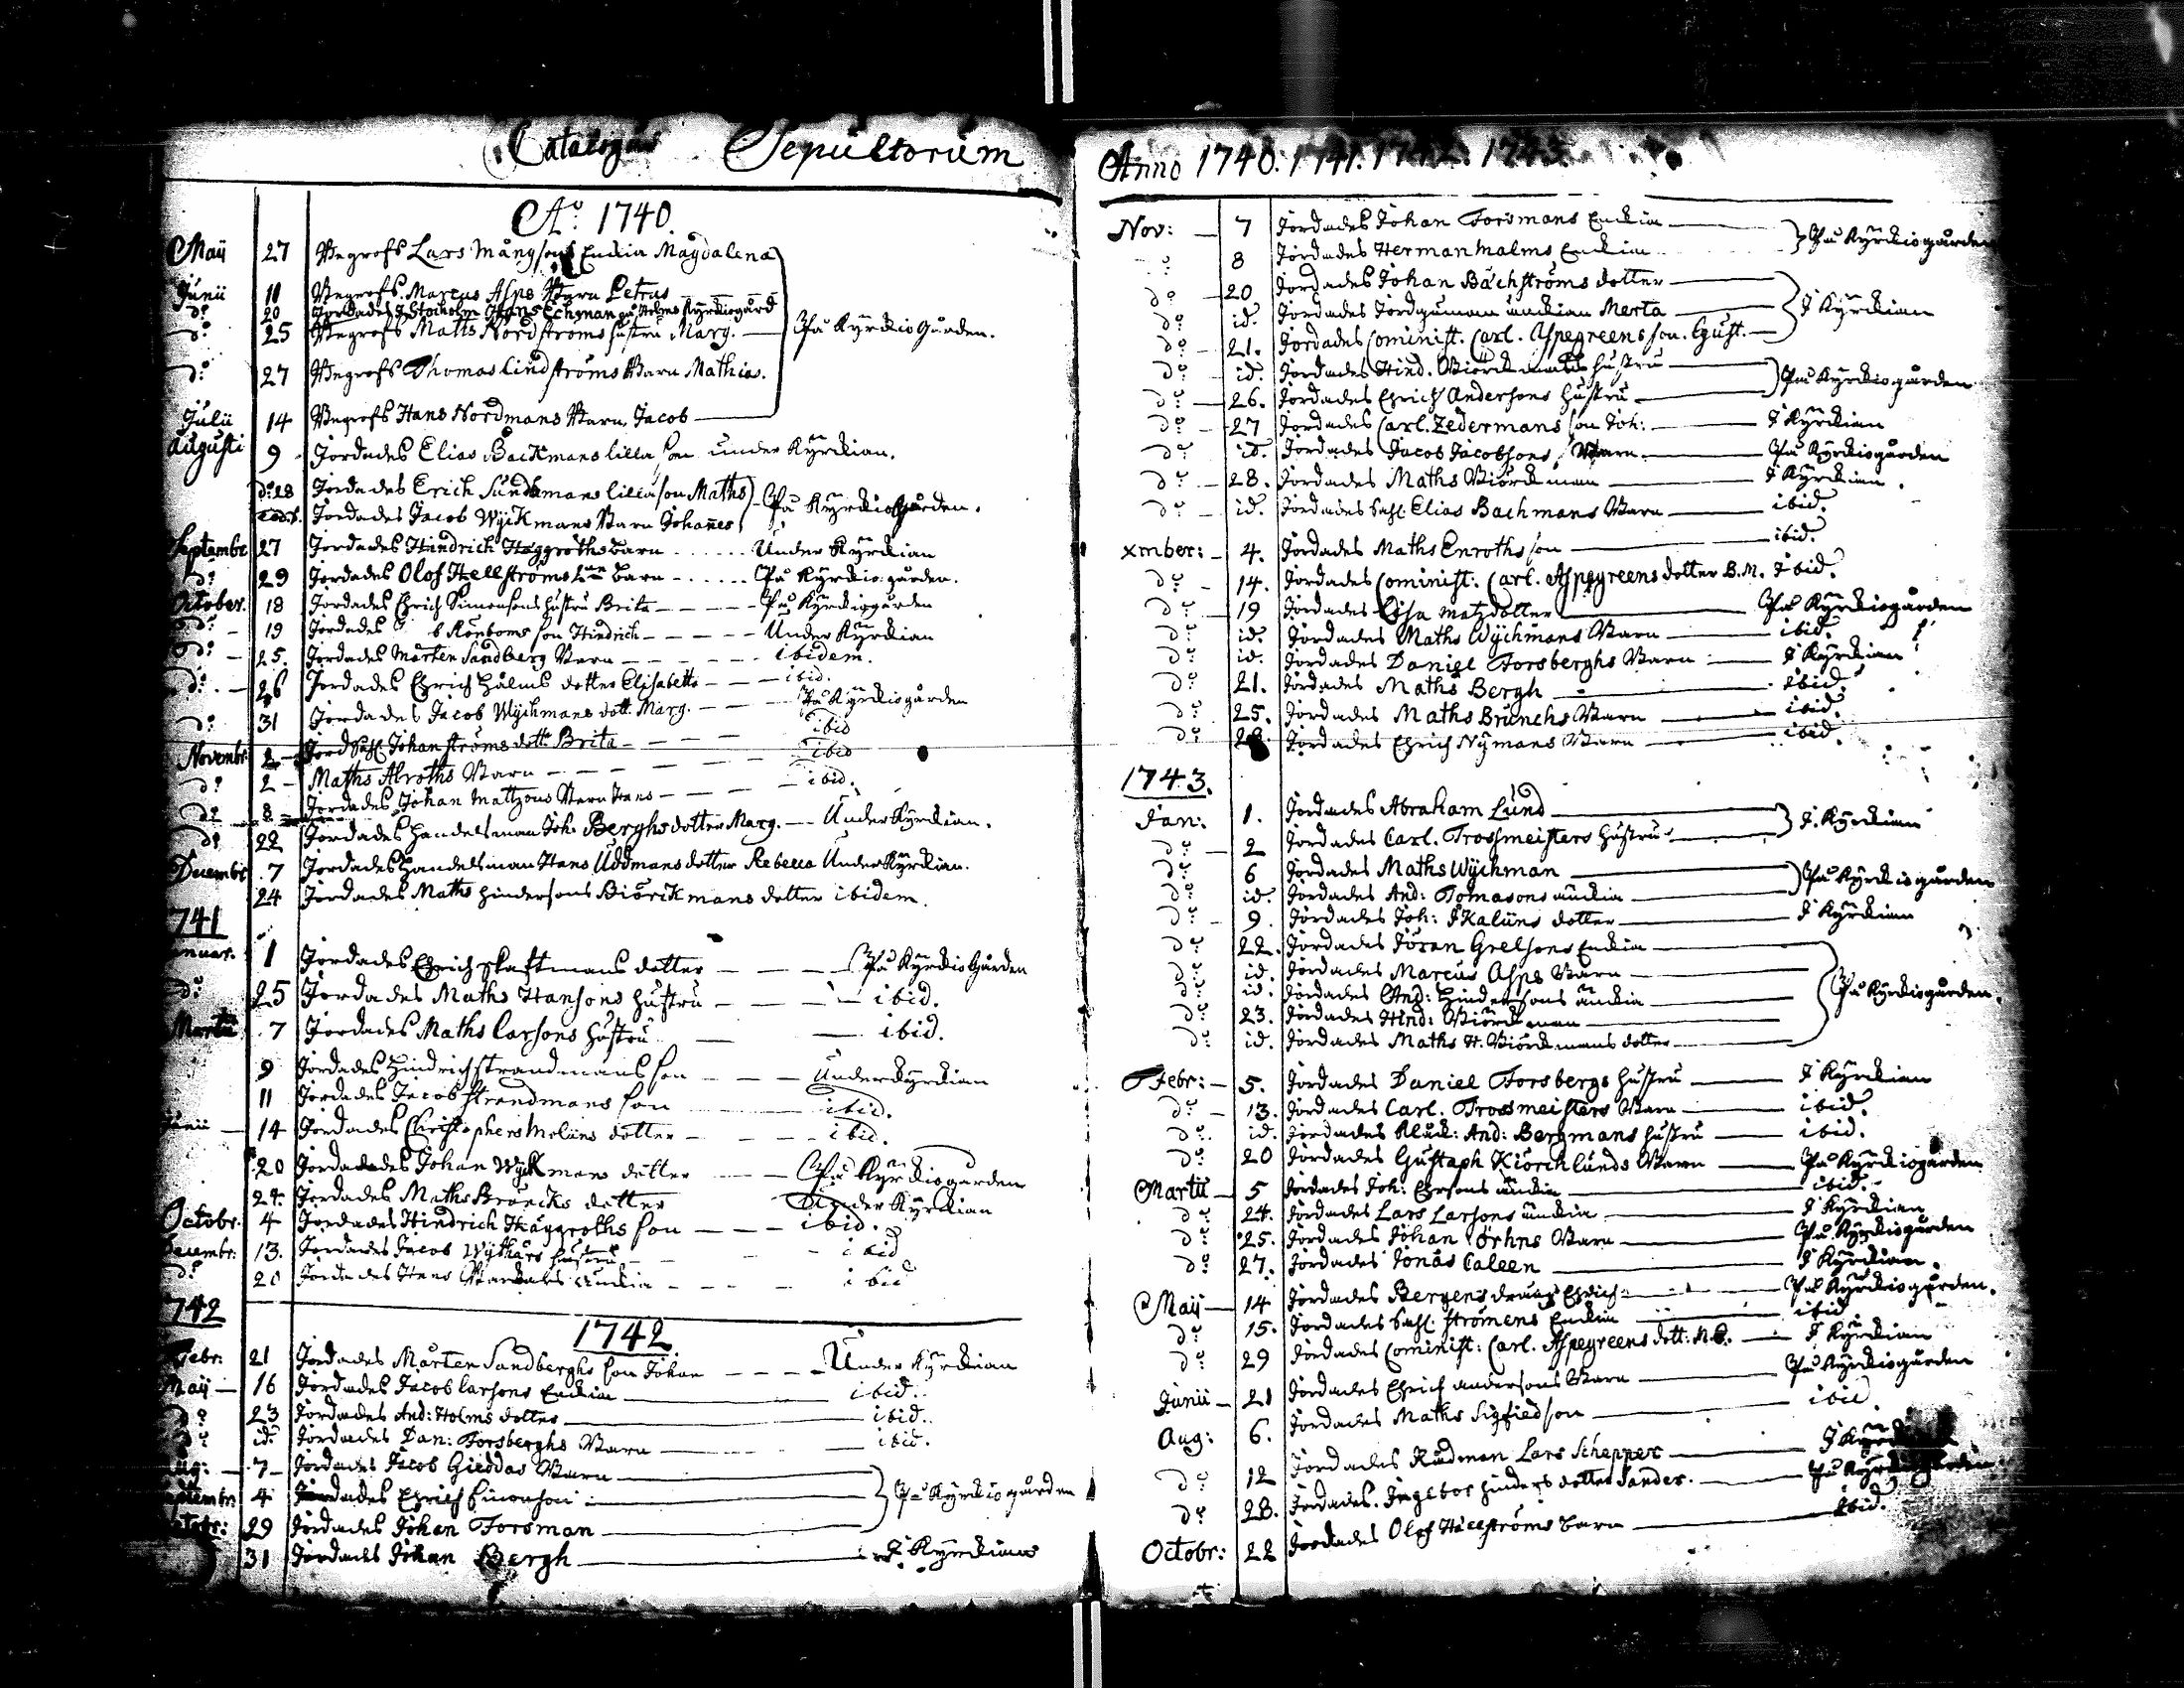 Catalogus Sepultorum
A:o 1740.
Maij 27 Begrofs Lars Mångsons Enckia Magdalena
Junii 11 Begrofs Marcus Asps Barn Petrus
d:o 20 Jordades I Stocholm Hans Echman på Holms Kyrkiogård
d:o 25 Begrofs Matts Nordströms hustru Marg. — På Kyrkio Gården.
d:o 27 Begrofs Thomas Lindströms Barn Mathias.
Julii 14 Begrofs Hans Nordmans Barn Jacob
Augusti 9 Jordades Elias Backmans lilla son under Kyrkian.
d:o 28 Jordades Erich Sundmans lilla son Maths
Jordades Jacob Wijkmans Barn Johannes — På Kyrkio Gården.
Septembr 27 Jordades Hindrich Häggroths barn ...... Under Kyrkian
d:o 29 Jordades Olof Hellströms barn ...... På Kyrkio gården.
October. 18 Jordades Erich Simonsons hustru Brita — På Kyrkiogården
d:o 19 Jordades Rönboms son Hindrich — Under Kyrkian
d:o 25. Jordades Mårten Sandberg Barn — ibidem.
d:o 26 Jordades Erich Holms dotter Elisabetts — ibid.
d:o 31 Jordades Jacob Wijchmans dott. Marg. — På Kyrkiogården
Novembr 2 Jord. Sahl. Johan ströms dott:r Brita — ibid
d:o 2 Maths Alroths Barn — ibid
d:o 8 Jordades Johan Mattzons Barn Hans — ibid.
d:o 22 Jordades Handelsman Joh. Berghs dotter Marg. — Under Kyrkian.
Decembr 7 Jordades Handelsman Hans Uddmans dotter Rebecca Under Kyrkian.
24 Jordades Maths Hindersons Biörkmans dotter ibidem.
741
1 Jordades Erich skaftmans dotter — På Kyrkio Gården
d:o 25 Jordades Maths Hansons hustru — ibid.
Martii 7 Jordades Maths Larsons hustru — ibid.
9 Jordades Hindrich strandmans son — Under Kyrkian
11 Jordades Jacob strandmans son — ibid.
Junii 14 Jordades Christophers Melins dotter — ibid.
20 Jordades Johan Wijkmans dotter — På Kyrkiogården
24. Jordades Maths Bruncks dotter Under Kyrkian
Octobr. 4 Jordades Hindrich Häggroths son — ibid.
Decembr: 13. Jordades Jacob hustru — ibid
d:o 20 Jordades Hans änckia — ibid
742
1742.
Febr: 21 Jordades Mårten Sandberghs son Johan — Under Kyrkian
Maij 16 Jordades Jacob Larsons Enckia — ibid.
d:o 23 Jordades And: Holms dotter — ibid.
d:o id. Jordades Dan: Forsberghs Barn — ibid.
Aug: 7 Jordades Jacob Gieddas Barn
Septembr 4 Jordades Erich Simonson — På Kyrkiogården
Octobr: 29 Jordades Johan Forsman
31 Jordades Johan Bergh — I Kyrkian
Anno 1740. 1741. 1742. 1743.
Nov: 7 Jordades Johan Forsmans Enckia — På Kyrkiogården
8 Jordades Herman Malms Enckia
d:o 20 Jordades Johan Bächströms dotter
d:o id. Jordades Jordgumman änckian Merta — I Kyrkian
d:o 21. Jordades Cominist. Carl. Aspegreens son. Gust.
d:o id. Jordades Hind. Biörckmans hustru — På Kyrkiogården
d:o 26. Jordades Erich Andersons hustru
d:o 27 Jordades Carl. Zedermans son Joh: — I Kyrkian
d:o id. Jordades Jacob Jacobsons Barn — På Kyrkiogården
d:o 28. Jordades Maths Biörckman — I Kyrkian.
d:o id. Jordades Sahl. Elias Bachmans Barn — ibid.
xmber: 4. Jordades Maths Enroths son — ibid.
d:o 14. Jordades Cominist: Carl. Aspegreens dotter B.M. Ibid.
d:o 19 Jordades Lisa Matzdotter — På Kyrkiogården
d:o id. Jordades Maths Wijchmans Barn — ibid.
d:o id. Jordades Daniel Forsberghs Barn — I Kyrkian
d:o 21. Jordades Maths Bergh — ibid.
d:o 25. Jordades Maths Brunchs Barn — ibid.
d:o 28. Jordades Erich Nymans Barn — ibid.
1743.
Jan: 1. Jordades Abraham Lund — I Kyrkian
d:o 2 Jordades Carl. Trossmeisters hustru
d:o 6 Jordades Maths Wijchman — På Kyrkiogården
d:o id. Jordades And: Tomasons änckia
d:o 9. Jordades Joh: Kalüns dotter — I Kyrkian
d:o 22. Jordades Jöran Grelsons Enckia
d:o id. Jordades Marcus Asps Barn
d:o id. Jordades And: Hindersons änckia — På Kyrkiogården.
d:o 23. Jordades Hind: Biörckman
d:o id. Jordades Maths H. Biörckmans dotter
Febr: 5. Jordades Daniel Forsbergs hustru — I Kyrkian
d:o 13. Jordades Carl. Trossmeisters Barn — ibid.
d:o id. Jordades Klåck: And: Bergmans hustru — ibid.
d:o 20 Jordades Gustaph Kiörchlunds Barn — På Kyrkiogården
Martii 5 Jordades Joh: Ersons änckia — ibid.
d:o 24. Jordades Lars Larsons änckia — I Kyrkian
d:o 25. Jordades Johan Örhns Barn — På Kyrkiogården
d:o 27. Jordades Jonas Caleen — I Kyrkian.
Maij 14 Jordades Bergens dräng Erich — På Kyrkiogården.
d:o 15. Jordades Sahl. strömens Enckia — ibid
d:o 29 Jordades Cominist: Carl. Aspegreens dott: — I Kyrkian
Junii 21 Jordades Erich andersons Barn — På Kyrkiogården
Aug: 6. Jordades Maths Sigfiedson — ibid.
d:o 12 Jordades Rådman Lars Schepper — I Kyrkian
d:o 28. Jordades. Ingebor Hinders dotter Sander. — På Kyrkiogården
Octobr: 22 Jordades Olof Hällströms barn — ibid.